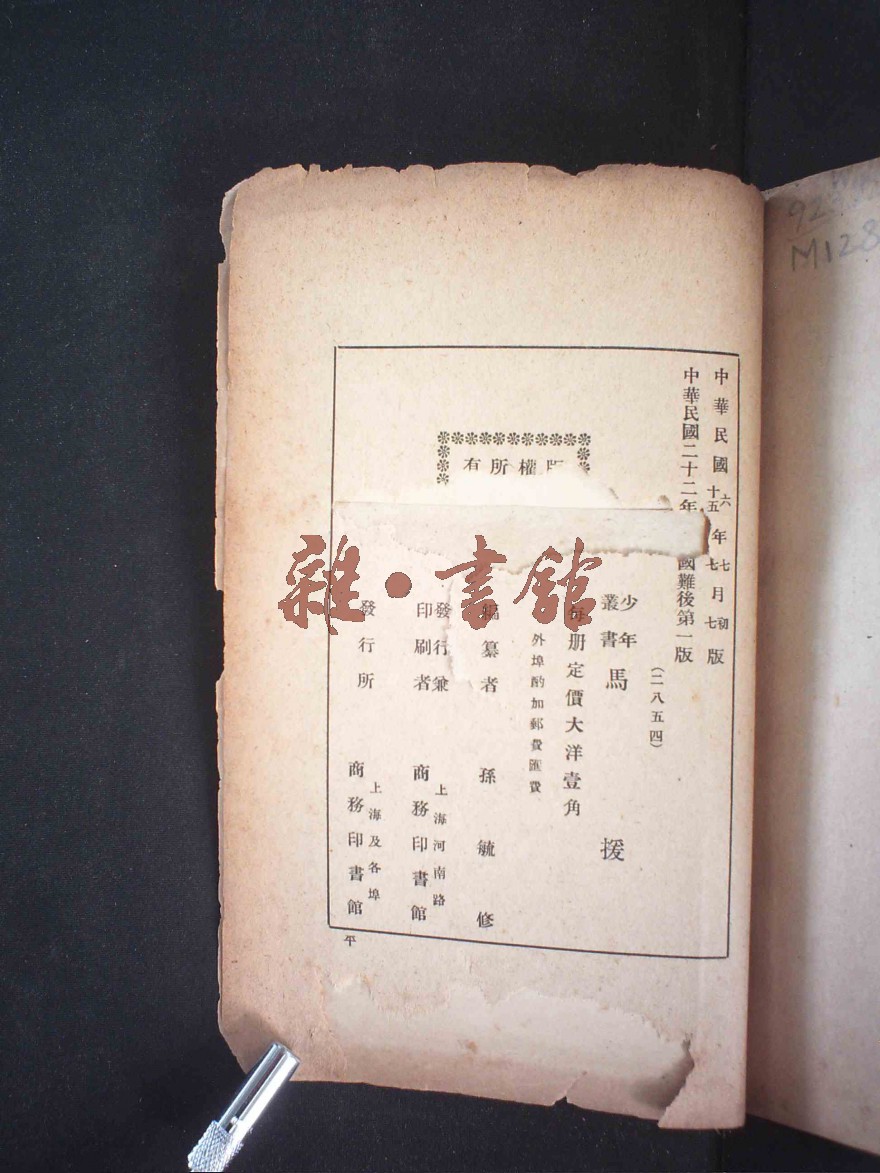 中華民國六年七月初版
十五 七 七
中華民國二十二年
國難後第一版
(二八五四)
少年叢書 馬援
每册定價大洋壹角
外埠酌加郵費匯費
版權所有
編纂者 孫毓修
發行兼印刷者 上海河南路 商務印書館
發行所 上海及各埠 商務印書館
平
雜·書館
M128